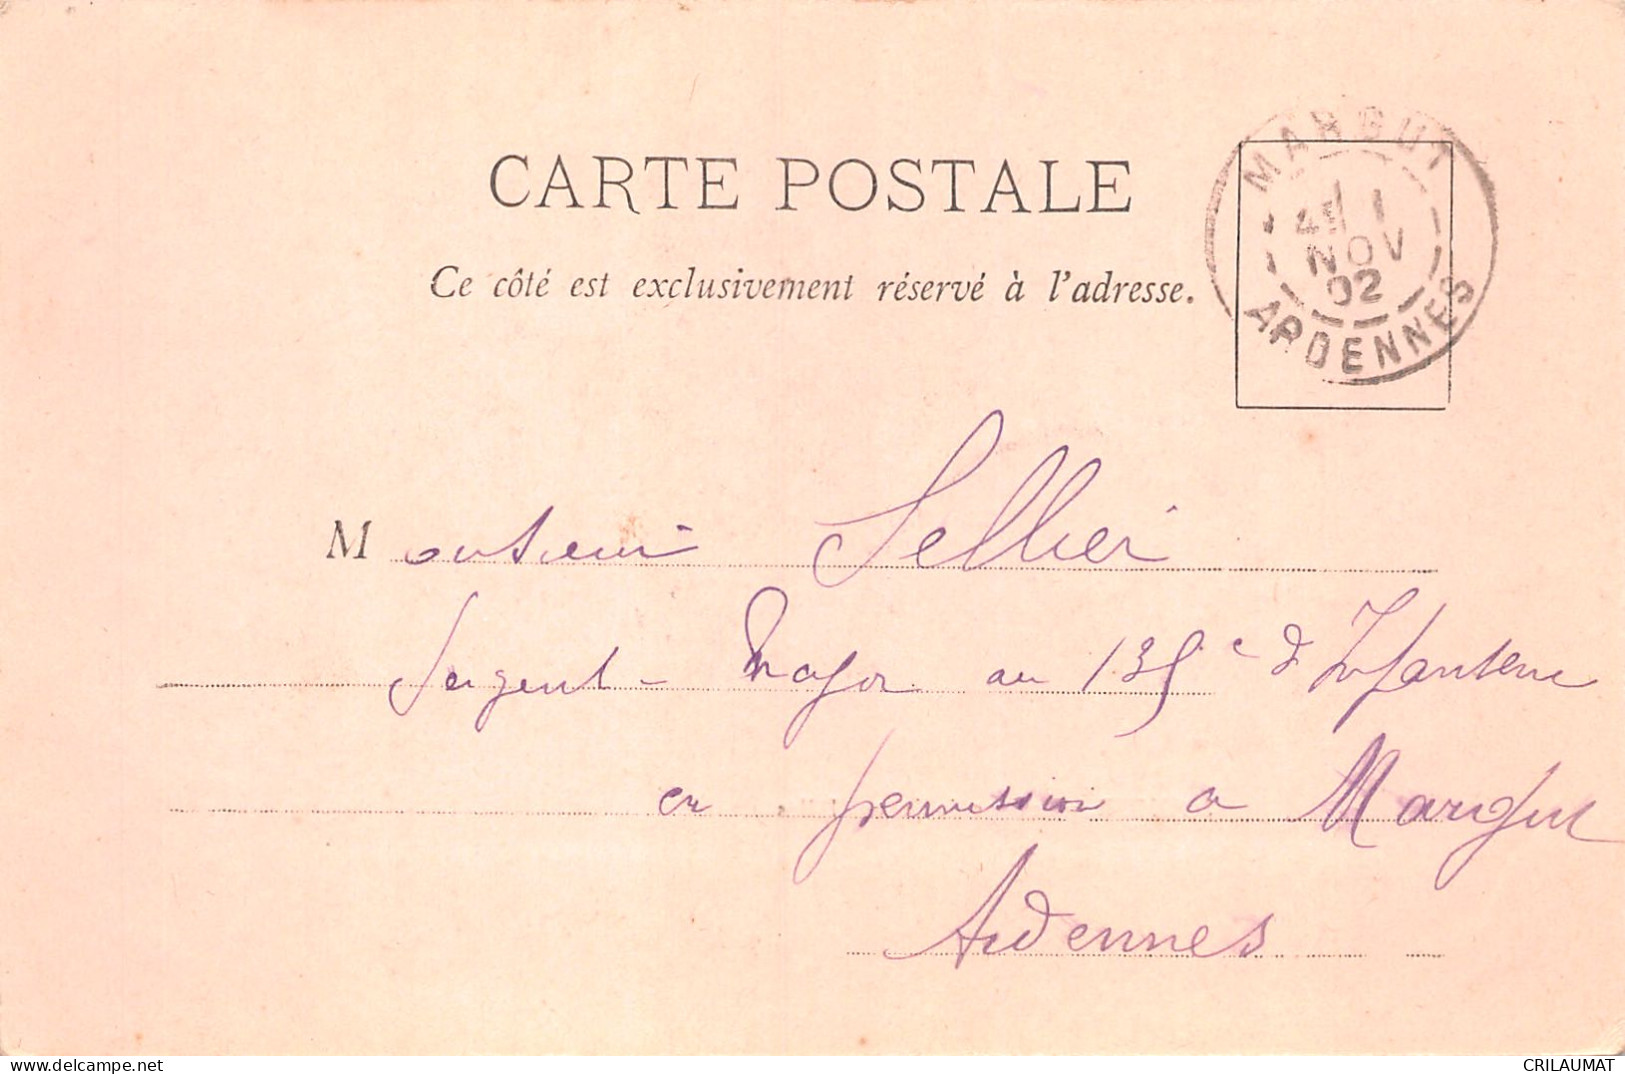 CARTE POSTALE
Ce côté est exclusivement réservé à l'adresse.
MARGUT
1
NOV
02
ARDENNES
Monsieur Sellier
Sergent-Major au 135e d'Infanterie
en permission a Margut
Ardennes
www.delcampe.net
CRILAUMAT